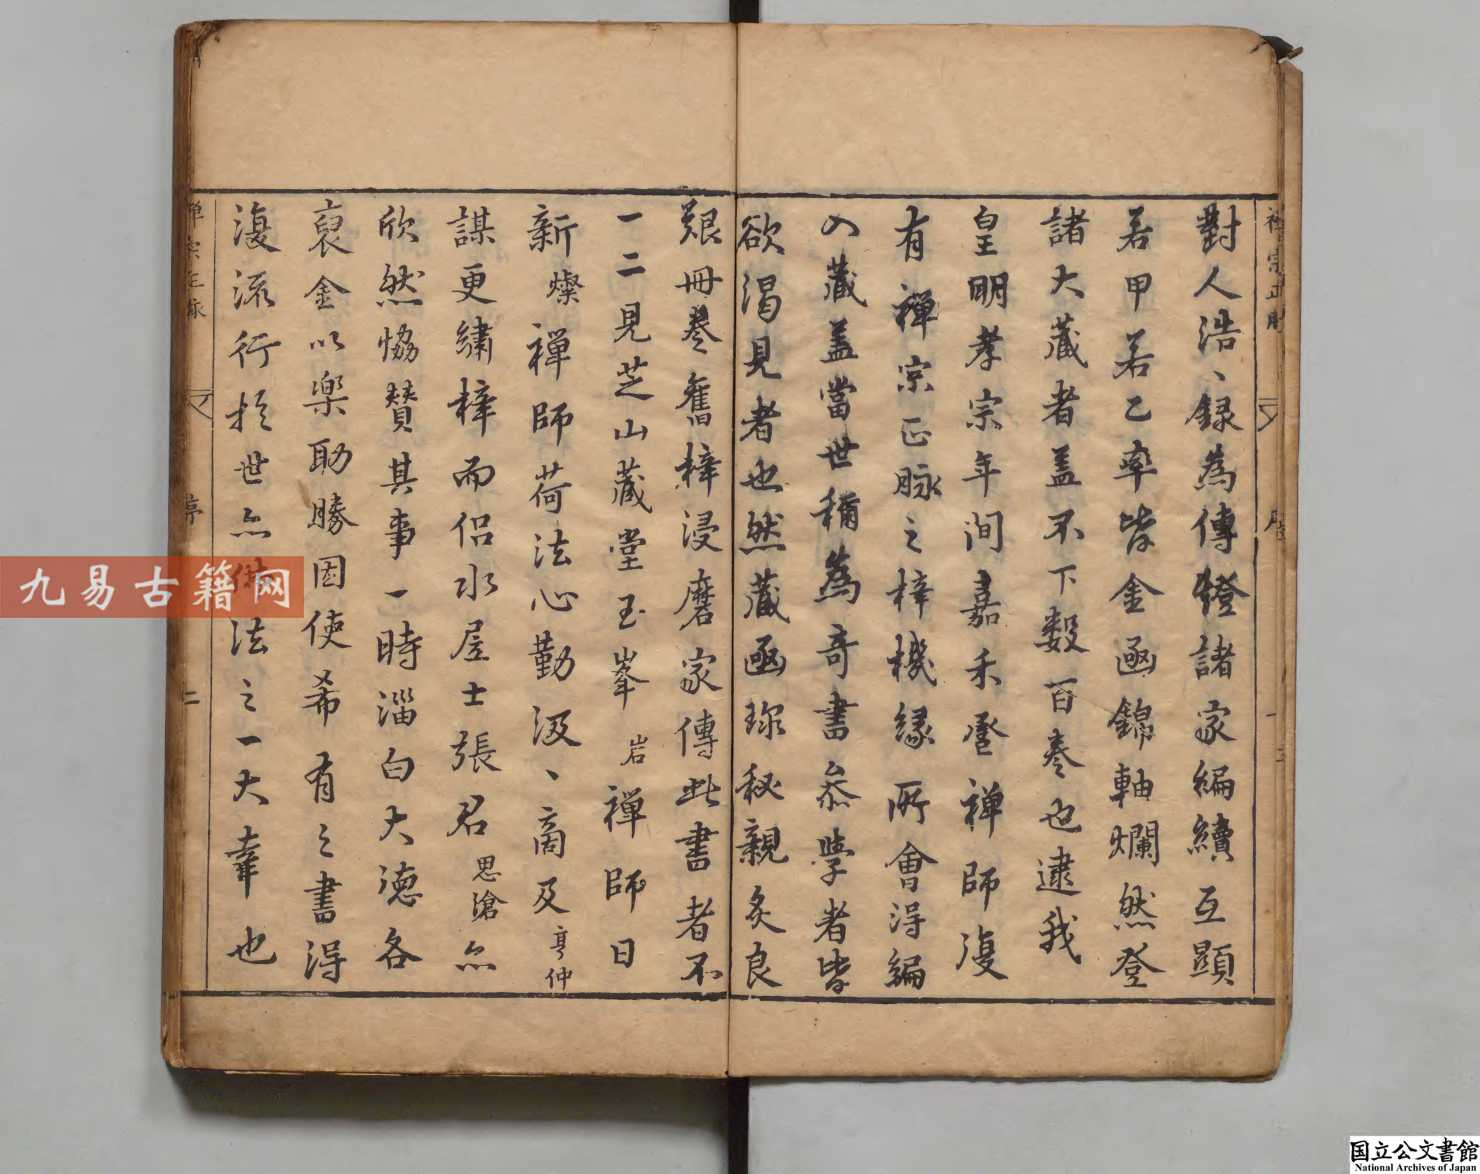 對人浩〻録爲傳鐙諸家編續互顯
若甲若乙率皆金函錦軸爛然登
諸大藏者蓋不下數百卷也逮我
皇明孝宗年間嘉禾巹禪師復
有禪宗正脉之梓機緣所會得編
入藏蓋當世稱爲奇書叅學者皆
欲渴見者也然藏函珎秘親炙良
艱冊卷舊梓浸磨家傳此書者不
一二見芝山藏堂玉峯岩禪師日
新燦禪師荷法心勤汲〻啇及亨仲
謀更繡梓而侣水居士張君思滄亦
欣然恊賛其事一時淄白大德各
裒金以樂助勝因使希有之書得
復流行於世亦佛法之一大幸也
禪宗正脉
序
二
九易古籍网
国立公文書館
National Archives of Japan